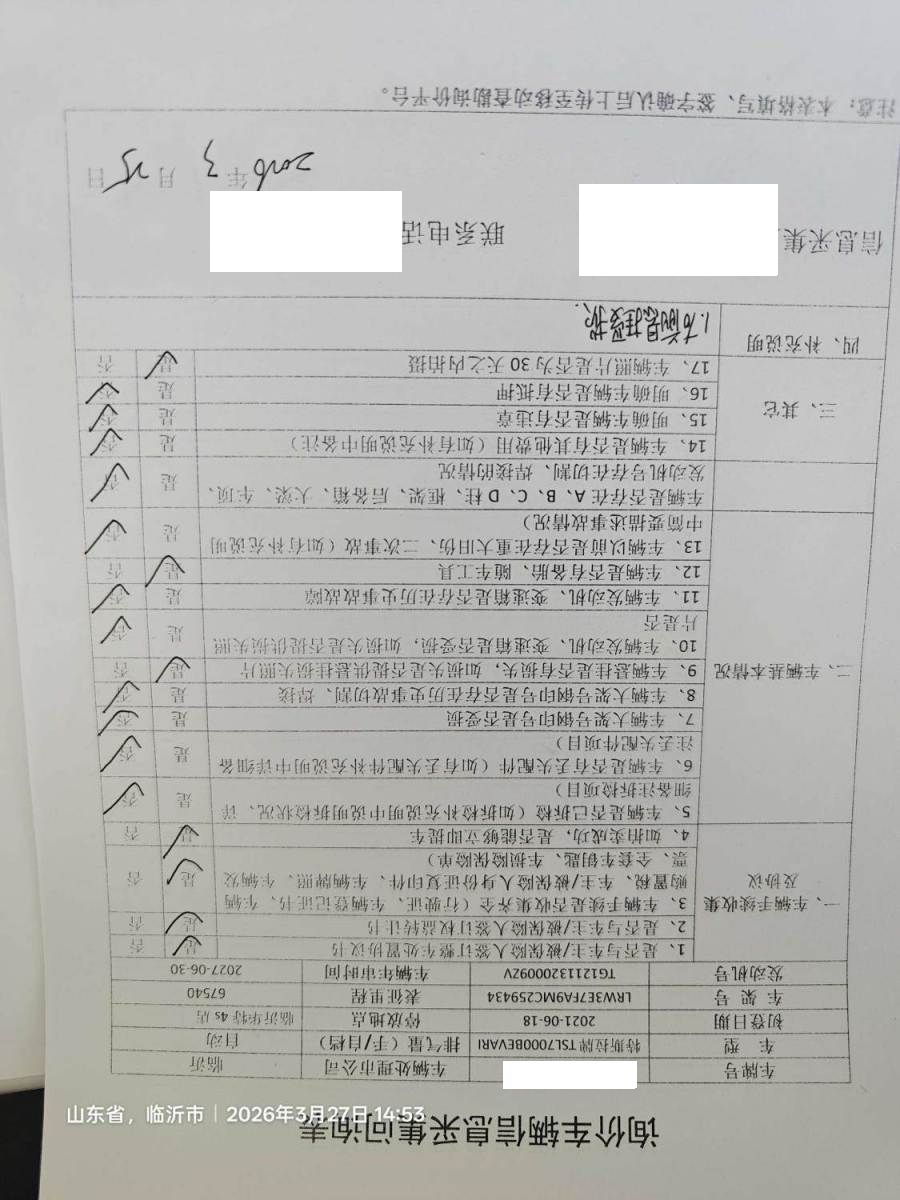 询价车辆信息采集问询表
车牌号 车辆处理市公司 临沂
车 型 特斯拉牌TSL7000BEVAR1 排气量（手/自档） 自动
初登日期 2021-06-18 停放地点 临沂华特4s店
车 架 号 LRW3E7FA9MC259434 表征里程 67540
发动机号 TG1211320009ZV 车辆年审时间 2027-06-30
一、车辆手续收集及协议
1、是否与车主/被保险人签订整车处置协议书 是 否
2、是否与车主/被保险人签订权益转让书 是 否
3、车辆手续是否收集齐全（行驶证、车辆登记证书、车辆
购置税、车主/被保险人身份证复印件、车辆牌照、车辆发
票、全套车钥匙、车损险保险单） 是 否
4、如拍卖成功，是否能够立即提车 是 否
二、车辆基本情况
5、车辆是否已拆检（如拆检补充说明中说明拆检状况、详
细备注拆检项目） 是 否
6、车辆是否有丢失配件（如有丢失配件补充说明中详细备
注丢失配件项目） 是 否
7、车辆大架号钢印号是否受损 是 否
8、车辆大架号钢印号是否存在历史事故切割、焊接 是 否
9、车辆悬挂是否有损失，如损失是否提供悬挂损失照片 是 否
10、车辆发动机、变速箱是否受损，如损失是否提供损失照
片是否 是 否
11、车辆发动机、变速箱是否存在历史事故故障 是 否
12、车辆是否有备胎、随车工具 是 否
13、车辆以前是否存在重大旧伤、二次事故（如有补充说明
中简要描述事故情况） 是 否
车辆是否存在A、B、C、D柱、框架、后备箱、大梁、车顶、
发动机号存在切割、焊接的情况 是 否
三、其它
14、车辆是否有其他费用（如有补充说明中备注） 是 否
15、明确车辆是否有违章 是 否
16、明确车辆是否有抵押 是 否
17、车辆照片是否为30天之内拍摄 是 否
四、补充说明 1.右前悬挂受损.
信息采集 联系电话
2026年3月25日
注意：本表格填写、签字确认后上传至移动查勘询价平台。
山东省，临沂市 | 2026年3月27日 14:53